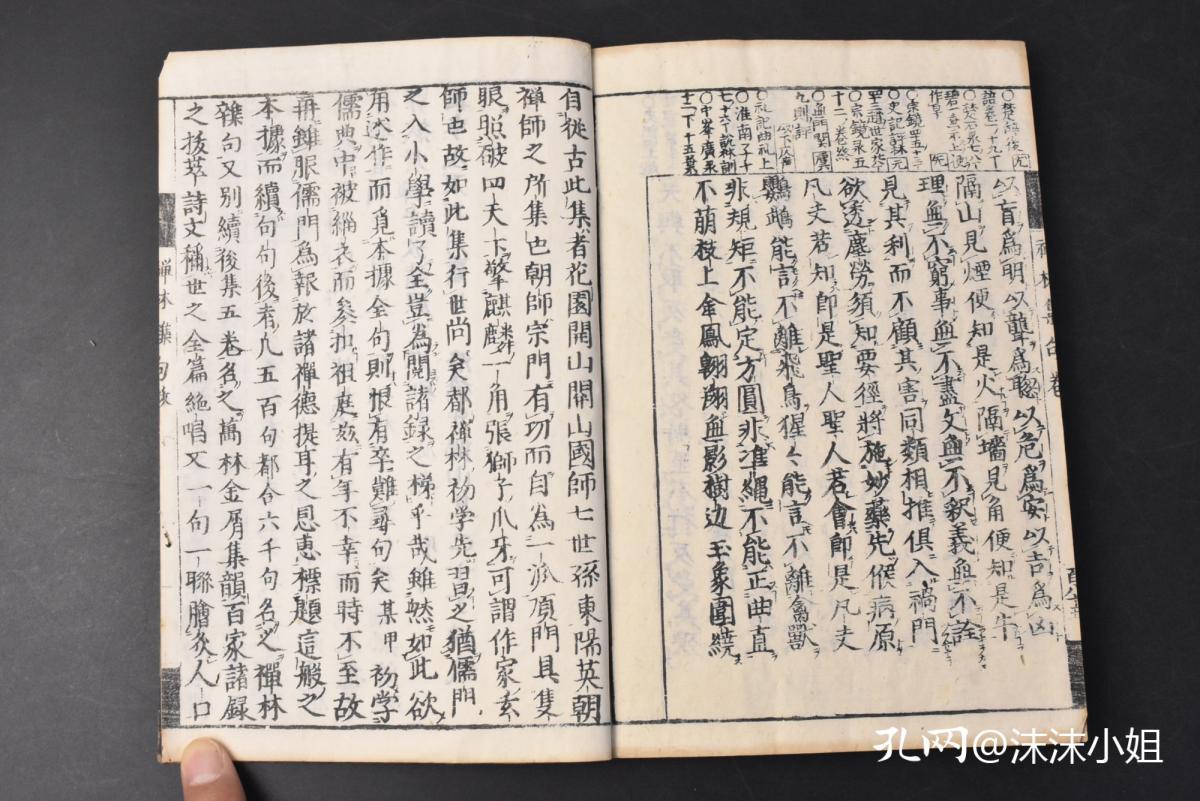 以盲爲明以聾爲聰以危爲安以吉爲凶
隔山見煙便知是火隔墻見角便知是牛
理無不窮事無不盡文無不釈義無不詮
見其利而不顧其害同類相推俱入禍門
欲透塵勞須知要徑將施妙藥先候病原
凡夫若知即是聖人聖人若會即是凡夫
鸚鵡能言不離飛鳥猩々能言不離禽獸
非規矩不能定方圓非准繩不能正曲直
不萌枝上金鳳翱翔無影樹辺玉象圍繞
自從古此集者花園開山關山國師七世孫東陽英朝
禅師之所集也朝師宗門有功而自為一派頂門具隻
眼照破四天下擎麒麟一角張獅子爪牙可謂作家素
師也故如此集行世尚矣都禅林初学先習之猶儒門
之入小學讀了全豈為閲諸録之梯乎哉雖然如此欲
用述作而覓本據全句則恨有卒難尋句矣某甲初学
儒典中被緇衣而参扣祖庭茲有年不幸而時不至故
再雖服儒門為報放諸禪德提耳之恩惠標題這般之
本據而續句句後者凡五百句都合六千句名之禪林
雜句又別續後集五卷名之萬林金屑集韻百家諸録
之抜萃詩文稱世之全篇絶唱又一句一聯膾炙人口
孔网@沫沫小姐